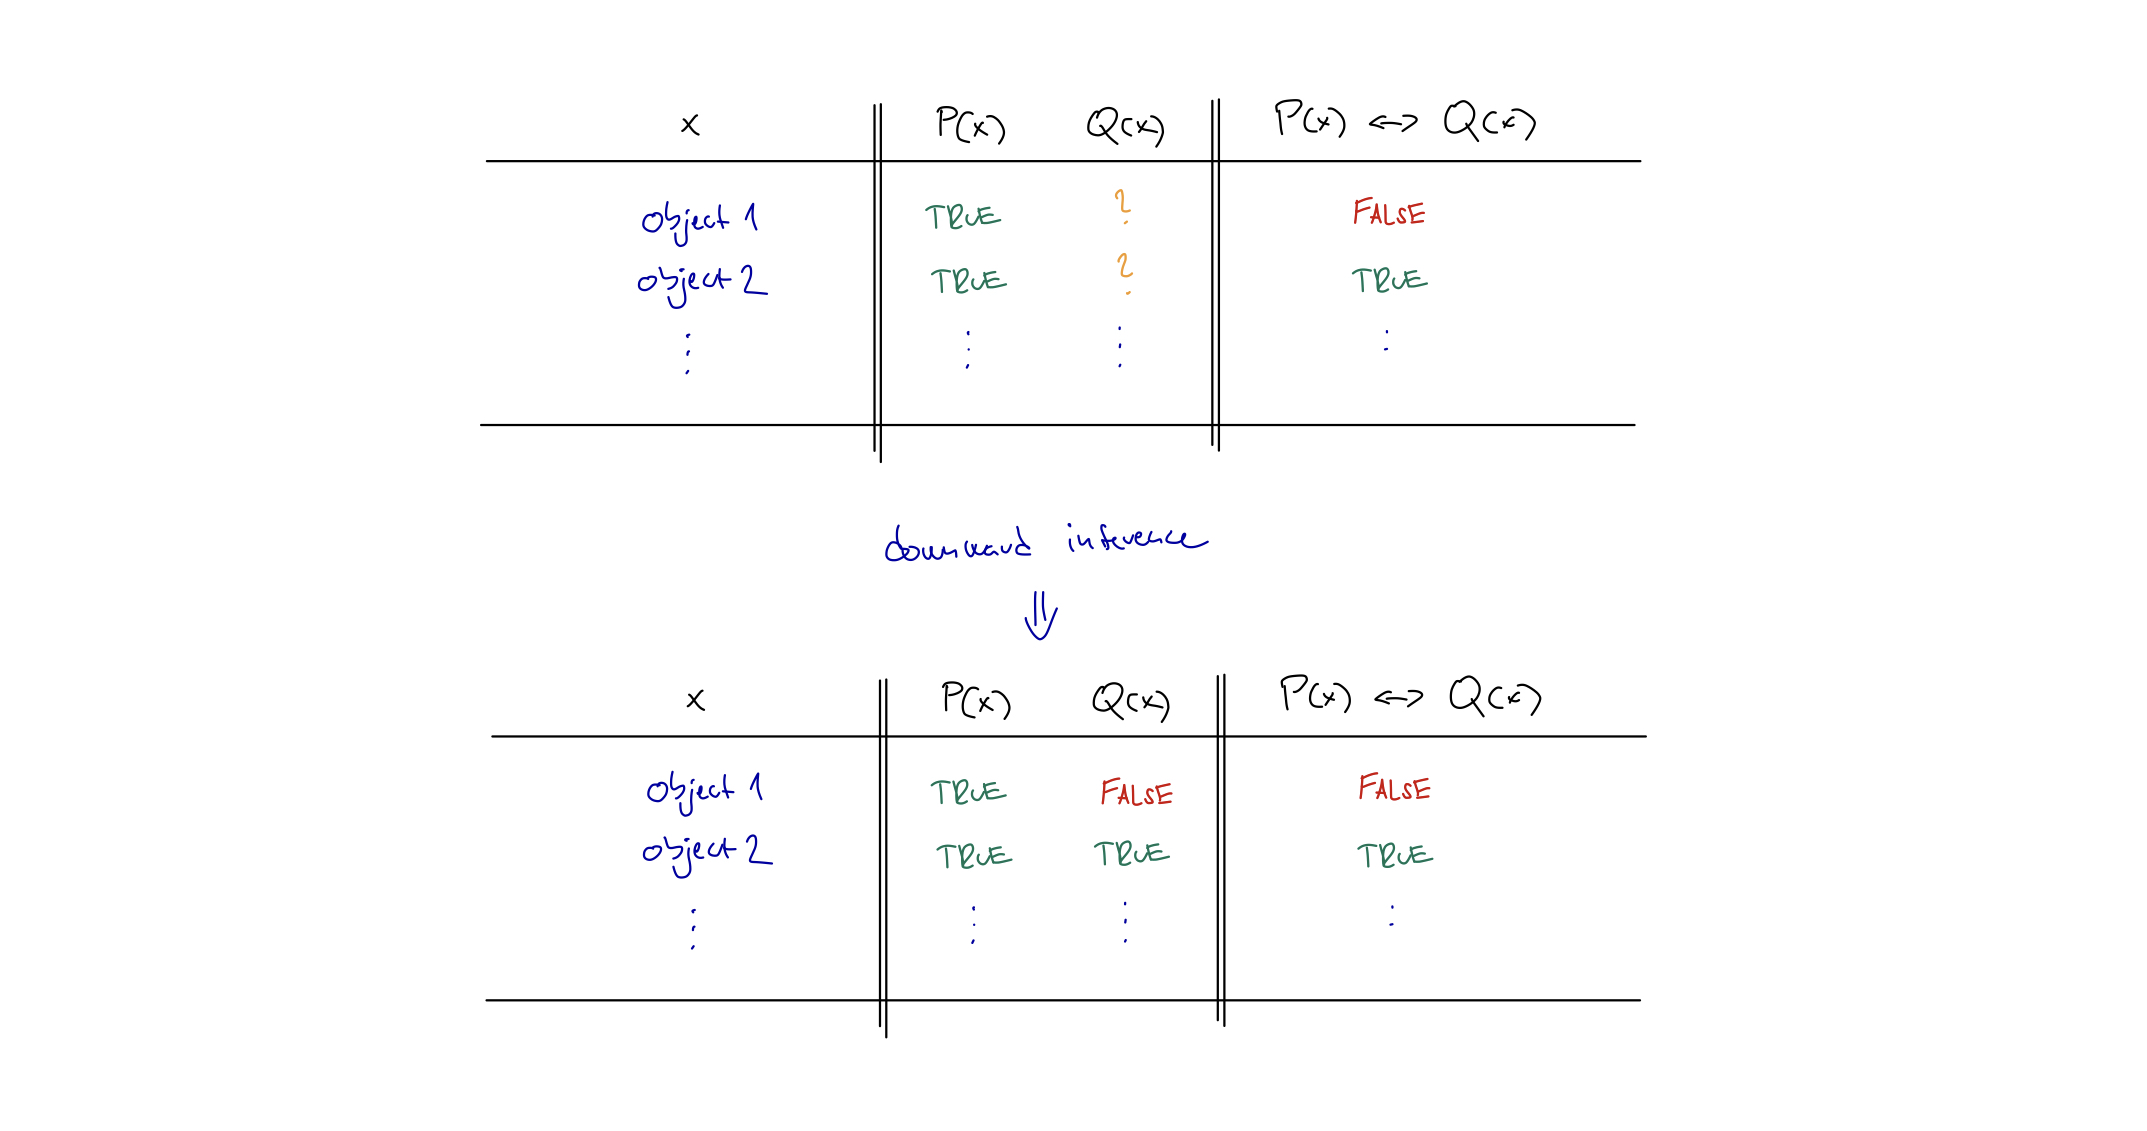 x P(x) Q(x) P(x) ↔ Q(x)
object 1 TRUE ? FALSE
object 2 TRUE ? TRUE
⋮ ⋮ ⋮ :
downward inference
⇓
x P(x) Q(x) P(x) ↔ Q(x)
object 1 TRUE FALSE FALSE
object 2 TRUE TRUE TRUE
⋮ ⋮ ⋮ :